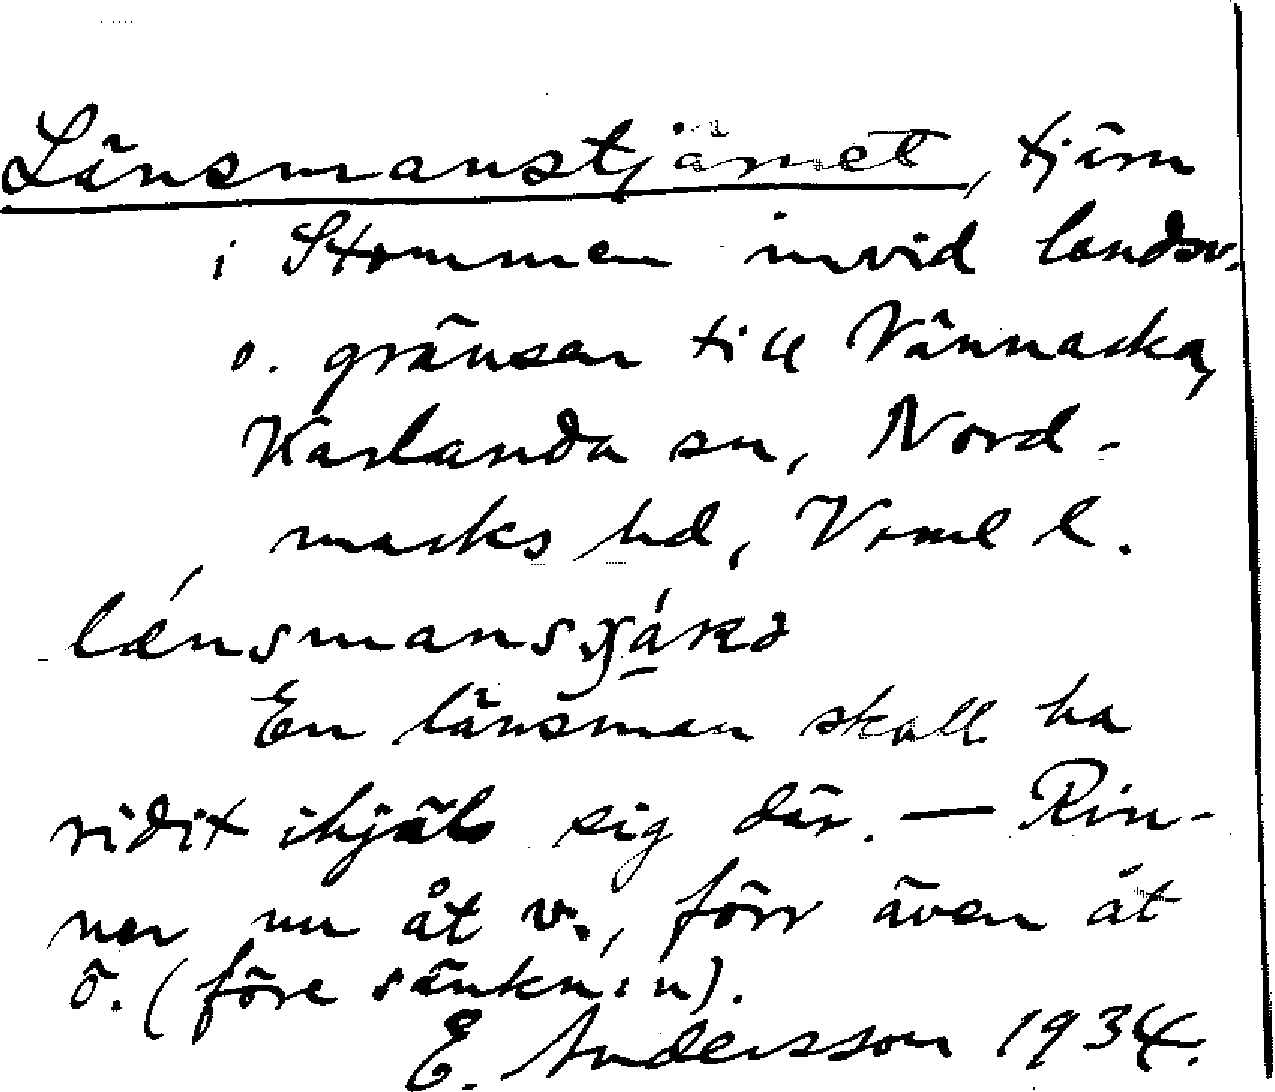 Länsmanstjärnet, tjärn
i Stommen invid landsv.
o. gränsen till Vännacka,
Karlanda sn, Nord-
marks hd, Vrml l.
En länsman skall ha
ridit ihjäl sig där. — Rin-
ner nu åt v., förr även åt
ö. (före sänkn:n).
E. Andersson 1934.